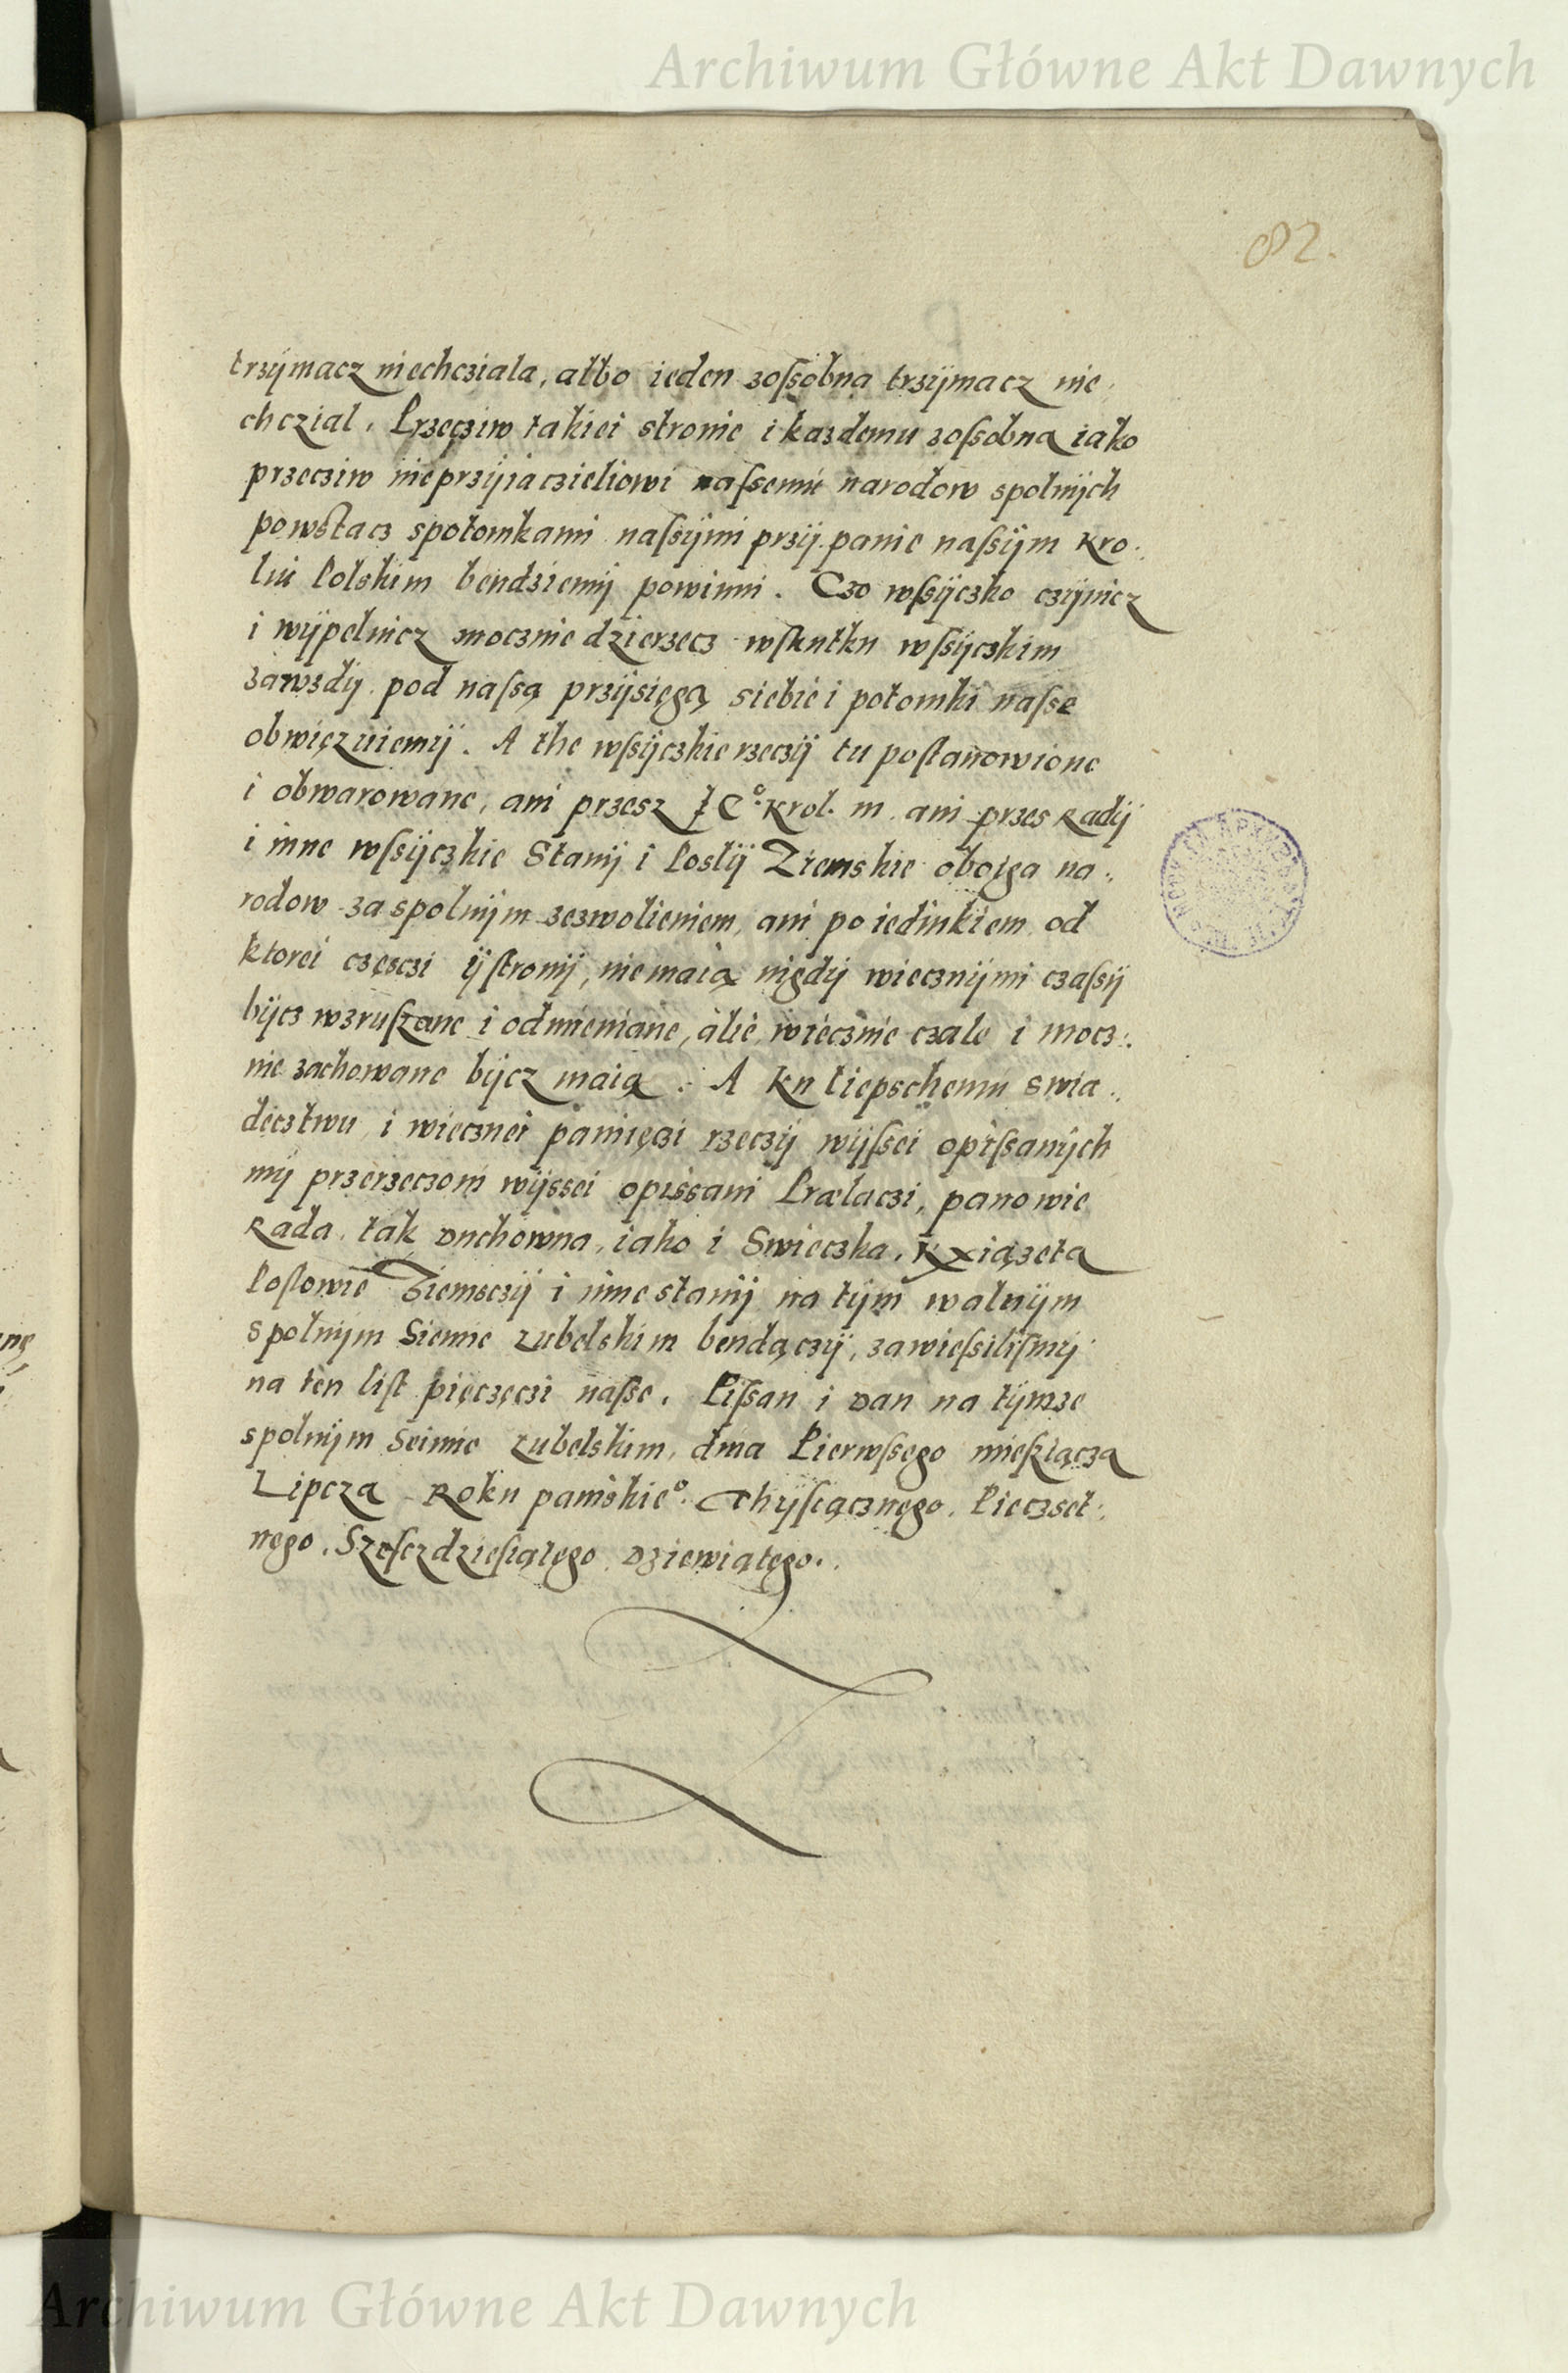 Archiwum Główne Akt Dawnych
82.
trzÿmacz niechcziala, albo ieden zoſsobna trzÿmacz nie
chczial. Przeciw takiei stronie i kazdemu zoſsobna iako
przecziw nieprzÿiaczieliowi naſsemu narodow spolnÿch
powstacz spotomkami naſsÿmi przÿ panie naſsÿm Kro.,
liu Polskim bendziemÿ powinni. Czo wſsÿczko czÿnicz
i wÿpelnicz mocznie dzierzecz wſkutku wſsÿczkim
zawzdÿ pod naſsą przÿsięgą siebie i potomki naſse
obwięzuiemÿ. A the wſsÿczkie rzeczÿ tu poſtanowione
i obwarowane, ani przesz JEº. Krol. m. ani przes Radÿ
i inne wſsÿczkie Stanÿ i Poslÿ Ziemskie oboiga na.,
rodow za spolnÿm zezwolieniem, ani po iedinkiem od
ktorei częsczi ÿ ſtronÿ, nie maią nigdÿ wiecznÿmi czaſsÿ
bÿcz wzruſzane i odmieniane, alie wiecznie czale i mocz.,
nie zachowane bÿcz maią. A ku liepschemu swia.,
decztwu i wiecznei pamięczi rzeczÿ wÿſsei opiſsanÿch
mÿ przerzeczoni wÿssei opissani Prælaczi, panowie
Rada tak Duchowna, iako i Swieczka, Kxiązęta
Poſlowie Ziemsczÿ i inne stanÿ na tÿm walnÿm
spolnÿm Siemie Lubelskim bendączÿ, zawieſsiliſmÿ
na ten liſt pięczęczi naſse. Piſsan i Dan na tÿmze
spolnÿm Seimie Lubelskim, dnia Pierwſsego mieſziącza
Lipcza Roku panskieº. Thÿſiącznego. Pieczset.,
nego. Szeſczdzieſiątego. Dziewiątego.
Archiwum Główne Akt Dawnych